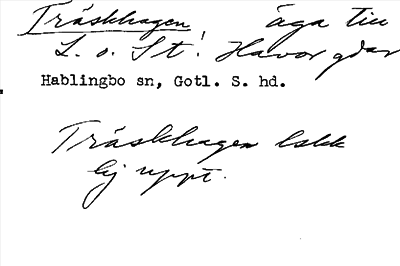 Träskhagen äga till
L. o. St! Havor gdar
Hablingbo sn, Gotl. S. hd.
Träskhagen lokk
Ej uppt.